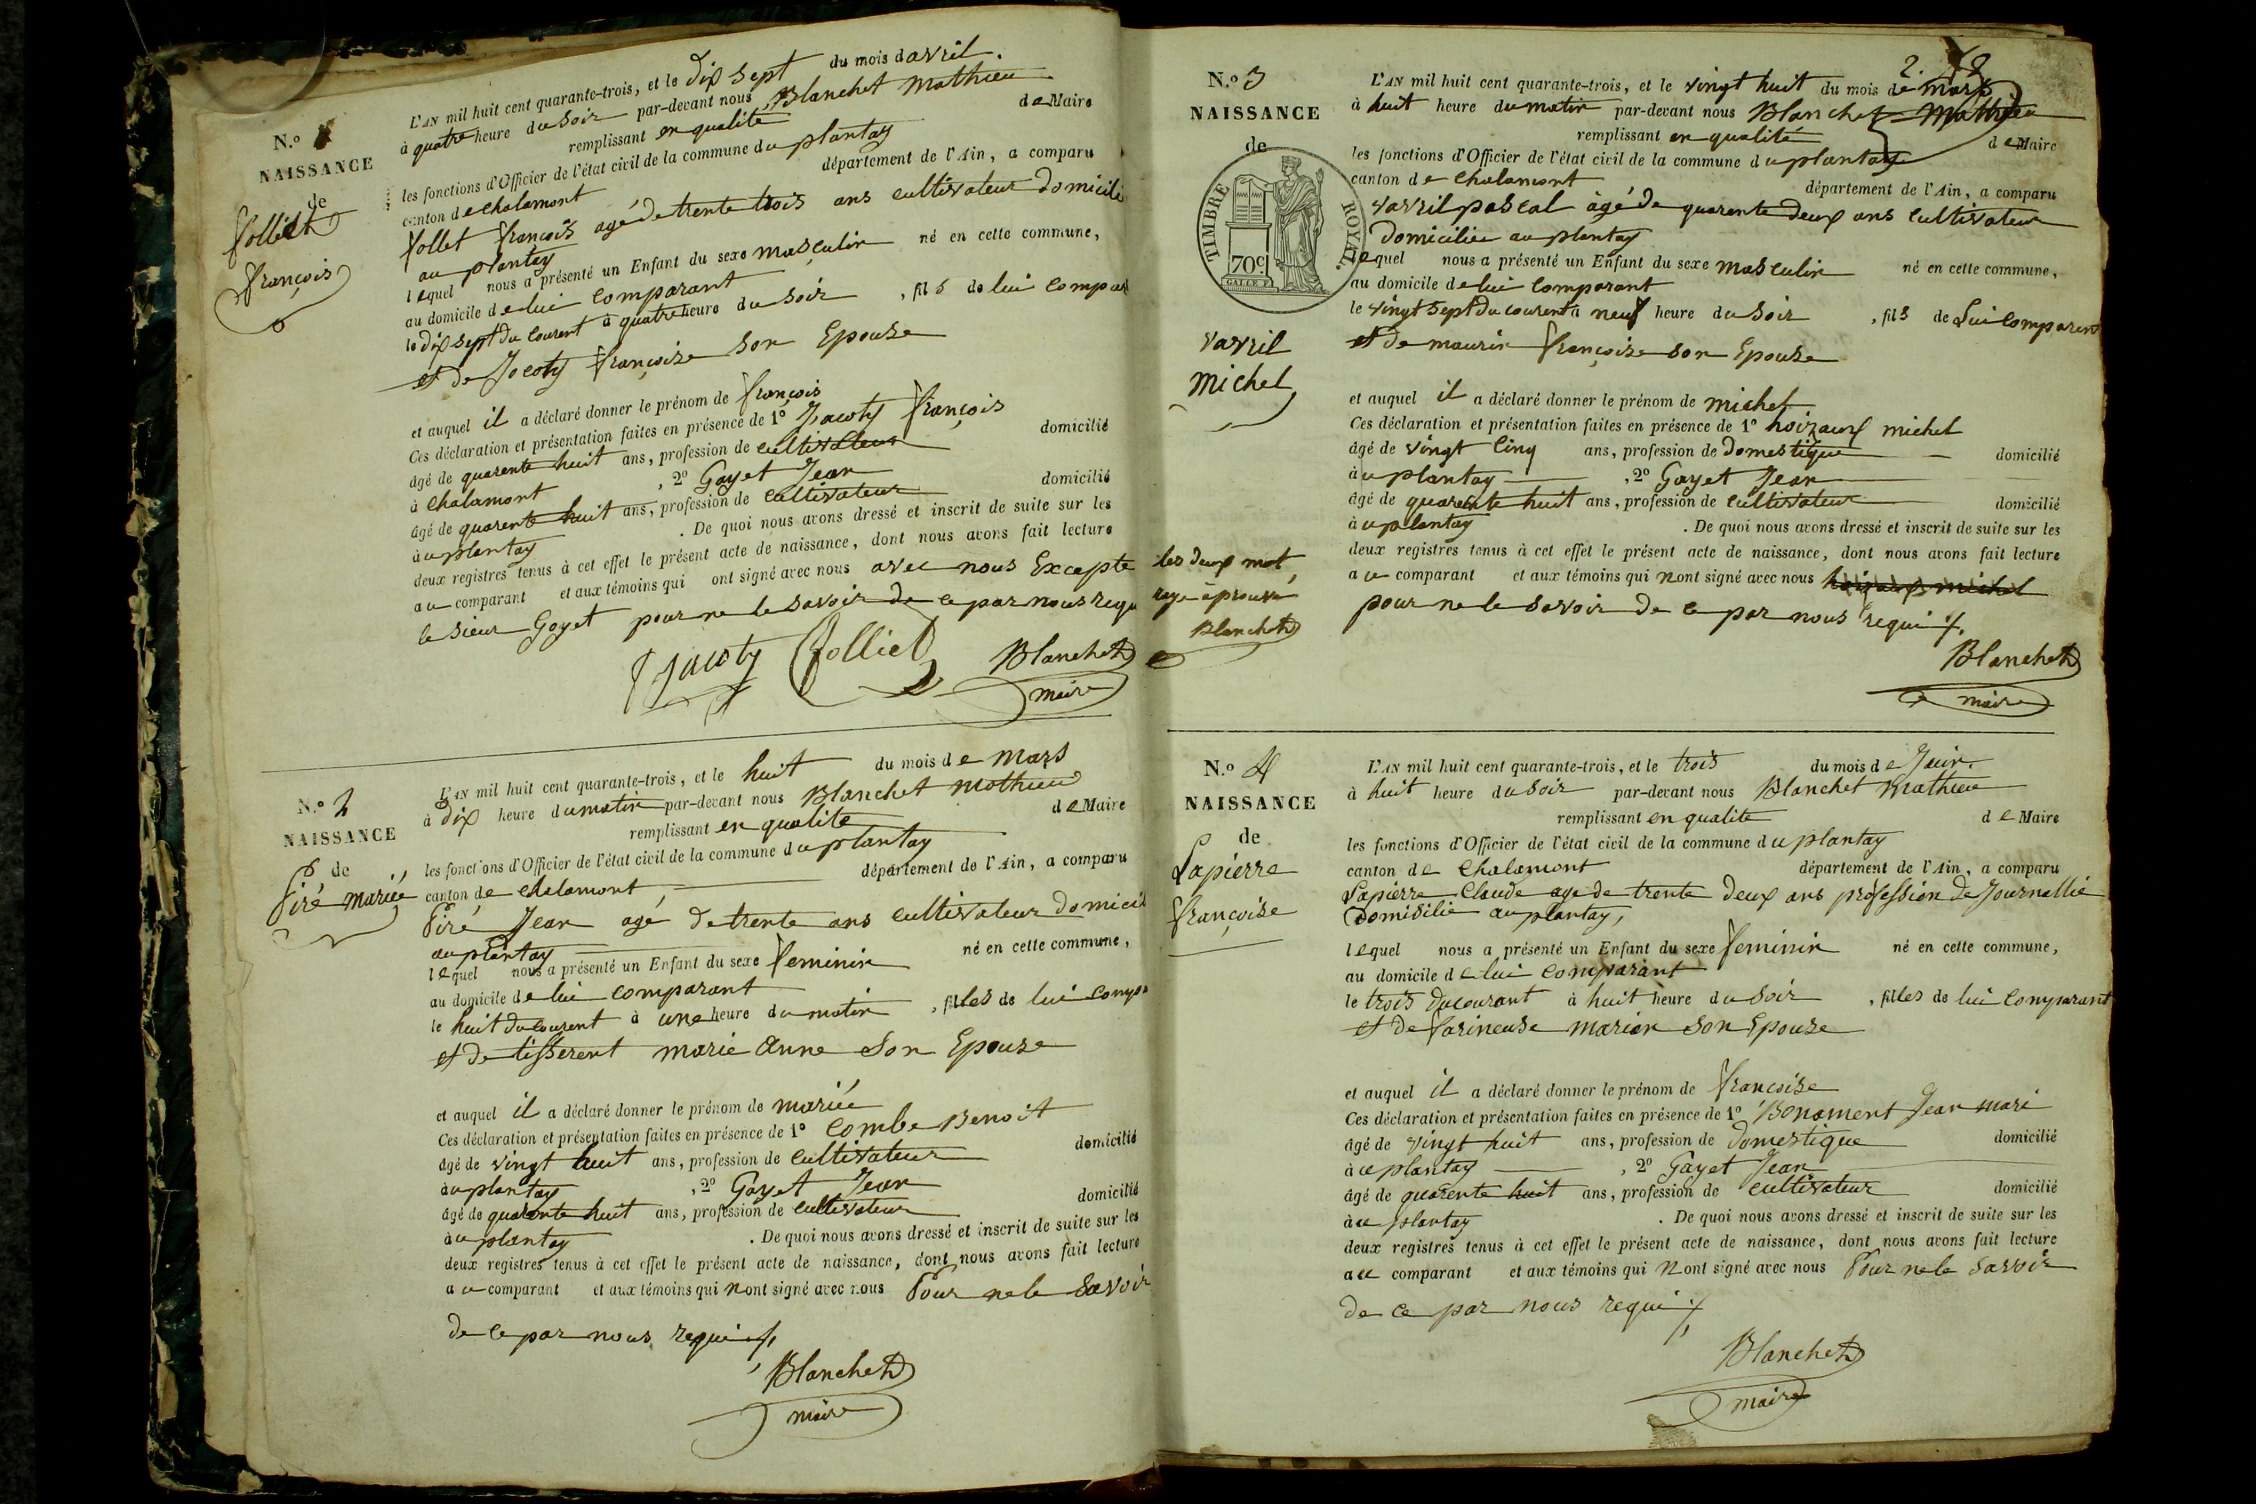 N.º
NAISSANCE
de
folliet
françois
L'AN mil huit cent quarante-trois, et le dix sept du mois d avril.
à quatre heure du soir par-devant nous Blanchet Mathieu
remplissant en qualité de Maire
les fonctions d'Officier de l'état civil de la commune du plantay
canton de chalamont département de l'Ain, a comparu
follet françois agé de trente trois ans cultivateur domicili
au plantay
lequel nous a présenté un Enfant du sexe masculin né en cette commune,
au domicile de lui comparant
le dix sept du courent à quatre heure du soir, fils de lui compar
et de Jocoty françoise son Epouse
et auquel il a déclaré donner le prénom de françois
Ces déclaration et présentation faites en présence de 1º Jacoty françois
âgé de quarente huit ans, profession de cultivateur domicilié
à chalamont, 2º Gayet Jean
âgé de quarente huit ans, profession de cultivateur domicilié
à u plantay. De quoi nous avons dressé et inscrit de suite sur les
deux registres tenus à cet effet le présent acte de naissance, dont nous avons fait lecture
a u comparant et aux témoins qui ont signé avec nous avec nous Excepte
le sieur Gayet pour ne le savoir de ce par nous requ
Jacoty folliet Blanchet
maire
N.º 2
NAISSANCE
de
Piré mariée
L'AN mil huit cent quarante-trois, et le huit du mois de Mars
à dix heure du matin par-devant nous Blanchet Mothieu
remplissant en qualite de Maire
les fonctions d'Officier de l'état civil de la commune du plantay
canton de chalamont, département de l'Ain, a comparu
Piré Jean agé de trente ans cultivateur domicil
au plantay
lequel nous a présenté un Enfant du sexe feminin né en cette commune,
au domicile de lui comparant
le huit du courent à une heure du matin, filles de lui compar
et de tisserent marie anne son Epouse
et auquel il a déclaré donner le prénom de mariée
Ces déclaration et présentation faites en présence de 1º Combe Benoit
âgé de vingt huit ans, profession de cultivateur domicilié
à u plantay, 2º Gayet Jean
âgé de quarante huit ans, profession de cultivateur domicilié
à u plantay. De quoi nous avons dressé et inscrit de suite sur les
deux registres tenus à cet effet le présent acte de naissance, dont nous avons fait lecture
a u comparant et aux témoins qui n ont signé avec nous Pour ne le savoir
de ce par nous requi
Blanchet
maire
2.
N.º 3
NAISSANCE
de
TIMBRE ROYAL.
70c
vavril
michel
les deux mot
rayé éprouvé
Blanchet
L'AN mil huit cent quarante-trois, et le vingt huit du mois de mars
à huit heure du matin par-devant nous Blanchet Mathieu
remplissant en qualité de Maire
les fonctions d'Officier de l'état civil de la commune du plantay
canton de Chalamont département de l'Ain, a comparu
vavril pascal âgé de quarente deux ans cultivateur
domiciliee au plantay
lequel nous a présenté un Enfant du sexe masculin né en cette commune,
au domicile de lui comparant
le vingt sept du courent à neuf heure du soir, fils de Lui comparent
et de maurin françoise son Epouse
et auquel il a déclaré donner le prénom de michel
Ces déclaration et présentation faites en présence de 1º hoizaux michel
âgé de vingt cinq ans, profession de domestique domicilié
à u plantay, 2º Gayet Jean
âgé de quarente huit ans, profession de cultivateur domicilié
à u plantay. De quoi nous avons dressé et inscrit de suite sur les
deux registres tenus à cet effet le présent acte de naissance, dont nous avons fait lecture
a u comparant et aux témoins qui n ont signé avec nous hoizaux michel
pour ne le savoir de ce par nous requi
Blanchet
maire
N.º 4
NAISSANCE
de
Lapierre
françoise
L'AN mil huit cent quarante-trois, et le trois du mois de Juin
à huit heure du soir par-devant nous Blanchet Mathieu
remplissant en qualite de Maire
les fonctions d'Officier de l'état civil de la commune du plantay
canton de Chalamont département de l'Ain, a comparu
Lapierre Claude age de trente deux ans profession de Journellié
Domisilié au plantay,
lequel nous a présenté un Enfant du sexe feminin né en cette commune,
au domicile de lui comparant
le trois du courant à huit heure du soir, filles de lui comparant
et de farineuse marion son Epouse
et auquel il a déclaré donner le prénom de françoise
Ces déclaration et présentation faites en présence de 1º Bonament Jean mari
âgé de vingt huit ans, profession de domestique domicilié
à u plantay, 2º Gayet Jean
âgé de quarente huit ans, profession de cultivateur domicilié
à u plantay. De quoi nous avons dressé et inscrit de suite sur les
deux registres tenus à cet effet le présent acte de naissance, dont nous avons fait lecture
a u comparant et aux témoins qui n ont signé avec nous Pour ne le savoir
de ce par nous requi
Blanchet
maire